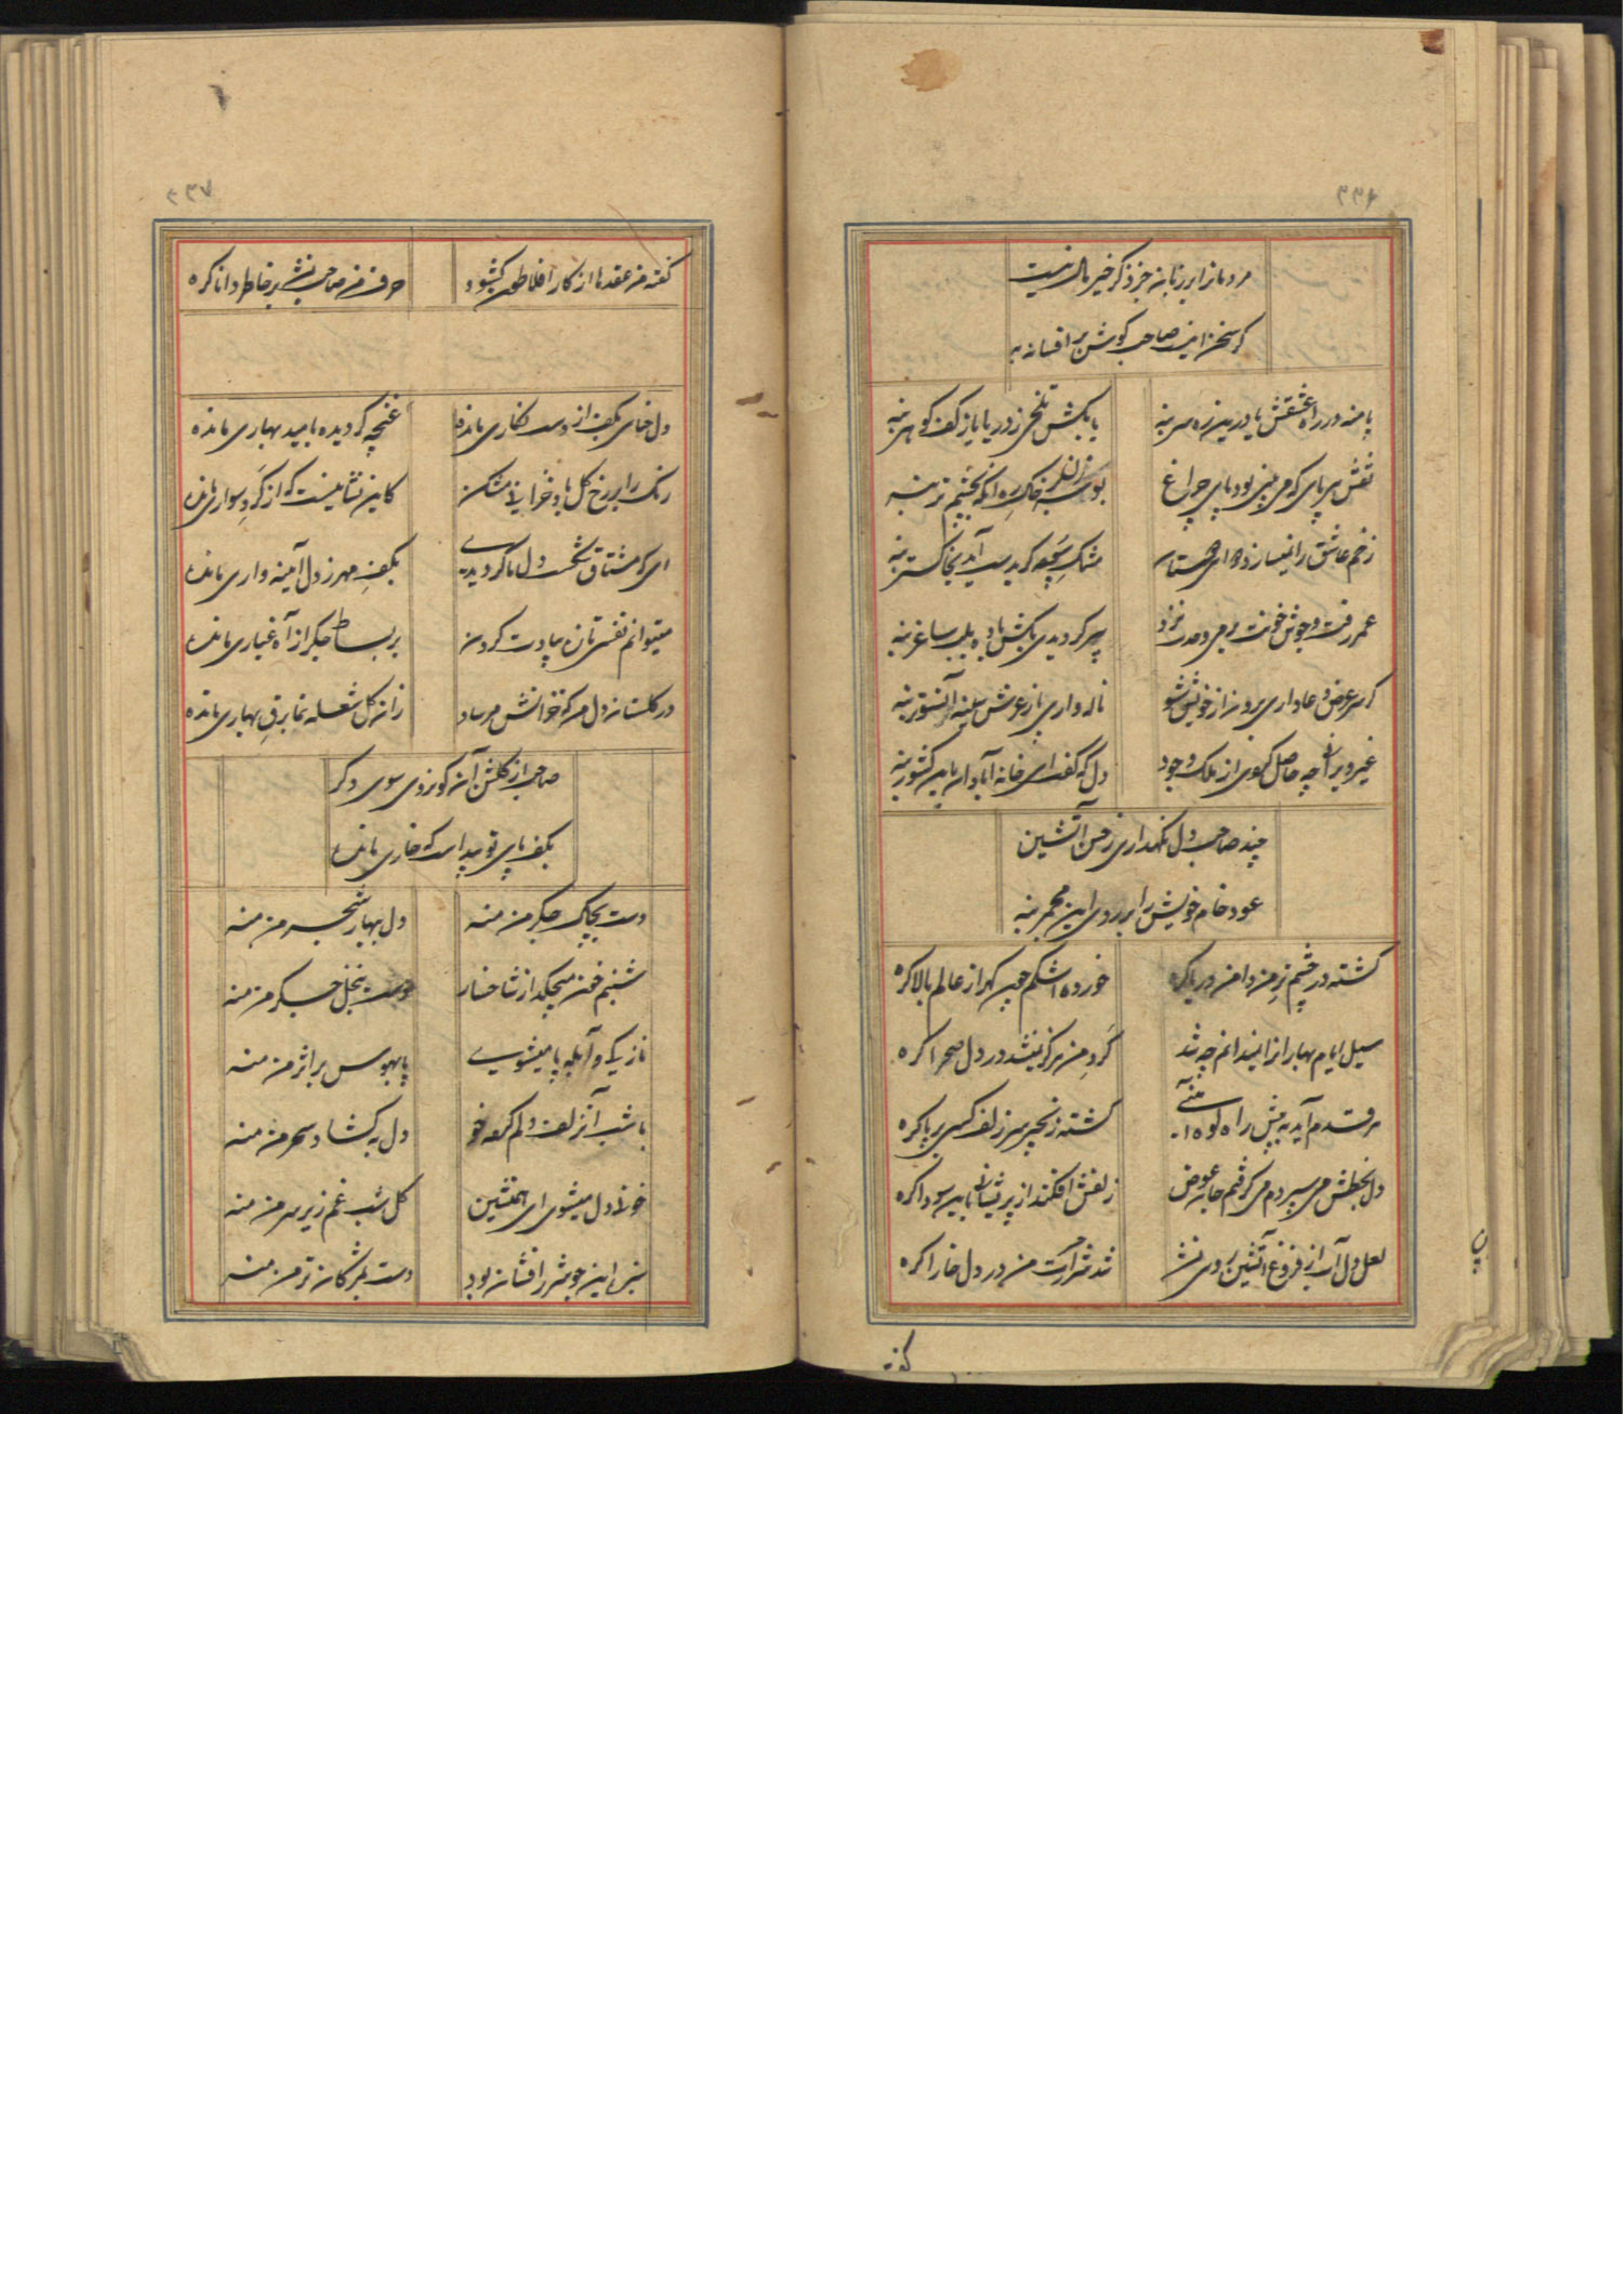 ۳۳۶
مردمانرا بر زبان جز ذکر خیر مال نیست
گر سخن اینست صاحب گوش بر افسانه به
پا منه در راه عشقش یا درین ره سر بنه
یا بکش تلخی ز دریا یا ز کف گوهر بنه
نقش پای که می بینی بود پای چراغ
بوسه بر خاک ره آنکه بچشم تر بنه
زخم عاشق را نمیسازد دوای
مشک سوده گر بدست آید بخاکستر بنه
عمر رفت و جوش خونت
پیر گردیدی بکش باده بلب ساغر بنه
گر سر عرض دعا داری برون از خویش شو
ناله داری باز عرش سینه
غیر ویرانی چه حاصل از ملک وجود
دل که گفت ای خانه آبادان باین کشور بنه
چند صاحب دل نگهداری ز حسن آتشین
عود خام خویش را بر روی این مجمر بنه
گشته در چشم تر من دامن دریا گره
خورده اشکم چون گهر از عالم بالا گره
سیل ایام بهار از نمیدانم چه شد
گرد من هرگز نشد در دل صحرا گره
هر قدم آید به پیش راه
گشته زنجیر سر زلف کسی بر پا گره
دل بخطش می سپردم می گرفتم جان عوض
زلفش افکند از پریشانی باین سودا گره
لعل دل آب از فروغ آتشین روی نشد
شد شرارت من در دل خارا گره
گفته
۳۳۷
گفته من عقدها از کار افلاطون گشود
حرف من صاحب نشد بر خاطر دانا گره
دل خنای بکف از دست نگاری مانده
غنچه گردیده بامید بهاری مانده
رنگ را بر رخ گل باد خزانی مشکن
کاین نشانیست که از گرد سواری مانده
ای که مشتاق شکست دل ما گردیدی
بکف مهر ز دل آینه واری مانده
میتوانم نفسی تازه بیادت کردن
بر بساط جگر از آه غباری مانده
در گلستان دل من که خزانش مرساد
زان گل شعله نما برق بهاری مانده
صاحب از گلشن آن کو نروی سوی دگر
بکف پای تو پیداست که خاری مانده
دست بچاک جگر من منه
دل بهار شجر من منه
شبنم خون میچکد از شاخسار
دست بنخل جگر من منه
نازکی و آبله پا میشوی
پا بهوس بر اثر من منه
با شب آن زلف دلم کرده خو
دل به گشاد سحر من منه
خون دل میشوی ای همنشین
گل شب غم زیر سر من منه
این جوش زر افشان بود
دست بمژگان تر من منه